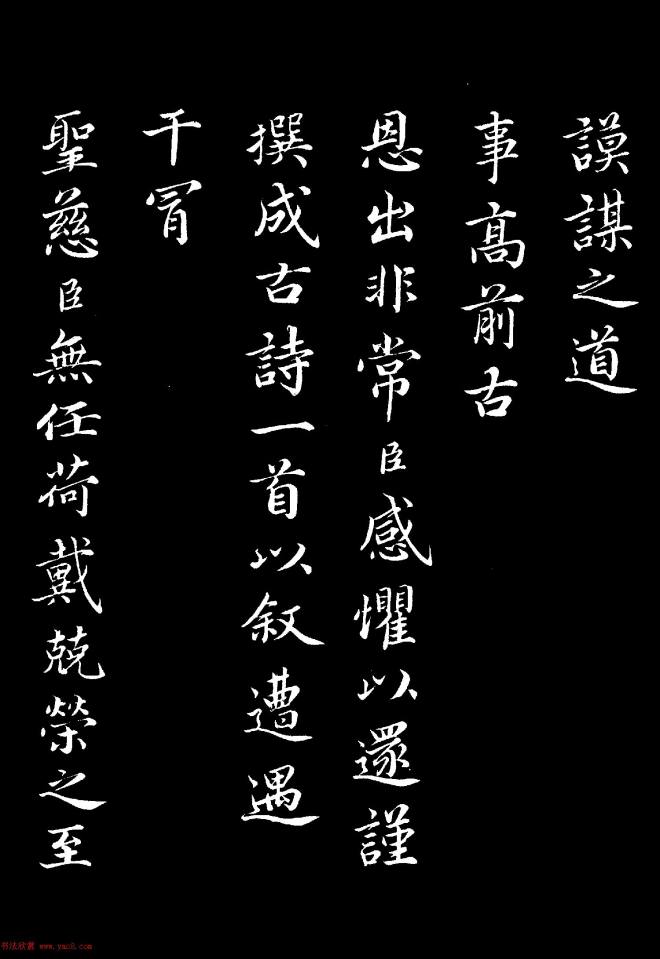 謨謀之道
事高前古
恩出非常臣感懼以還謹
撰成古詩一首以叙遭遇
干冒
聖慈臣無任荷戴兢榮之至
书法欣赏 www.yac8.com